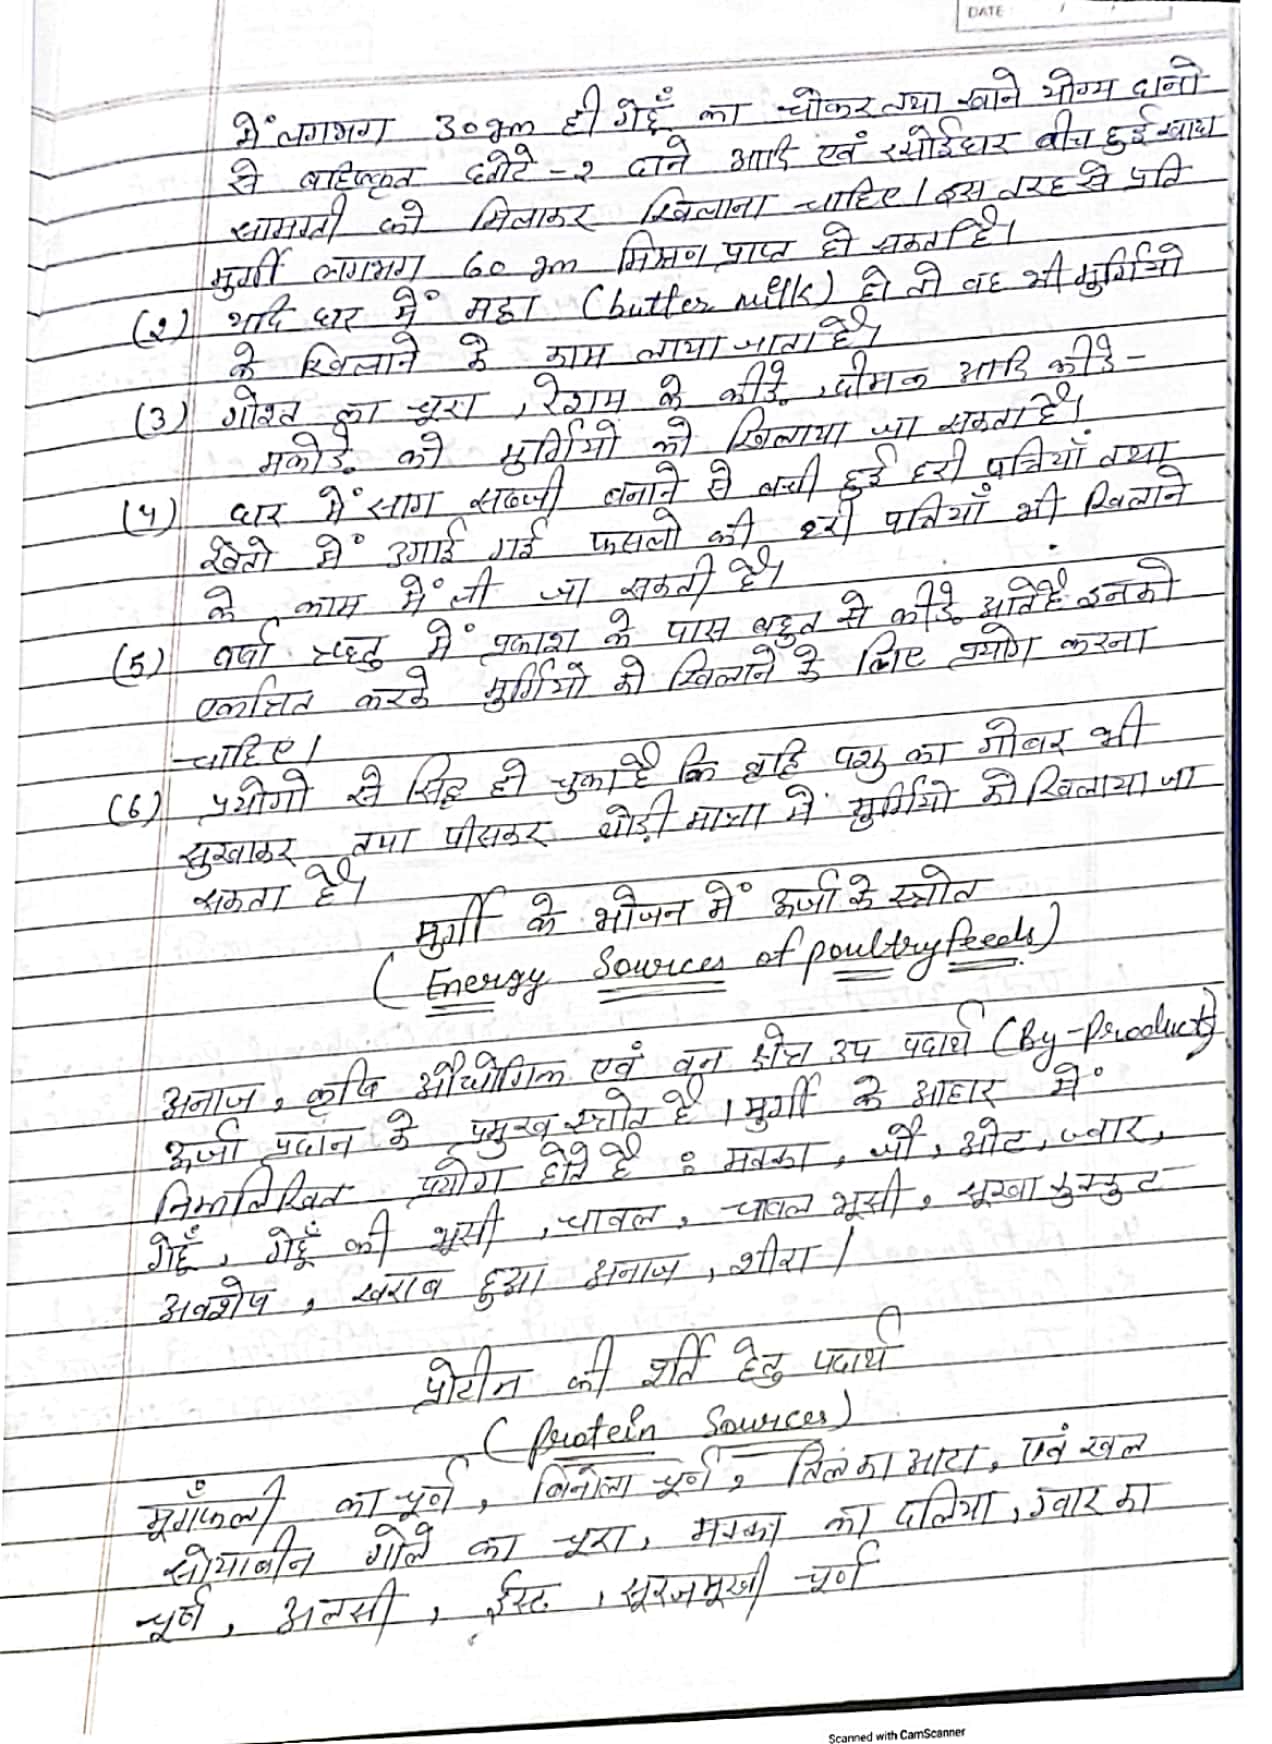 DATE / /
में लगभग 30 gm ही गेहूँ का चोकर तथा खाने योग्य दानो
से बहिष्कृत छोटे-२ दाने आदि एवं रसोईघर बीच हुई खाद्य
सामग्री को मिलाकर खिलाना चाहिए। इस तरह से प्रति
मुर्गी लगभग 60 gm मिश्रण प्राप्त हो सकता है।
(२) यदि घर में मट्ठा (butter milk) हो तो वह भी मुर्गियो
के खिलाने के काम लाया जाता है।
(3) गोश्त का चूरा, रेशम के कीडे, दीमक आदि कीडे-
मकोडे को मुर्गियो को खिलाया जा सकता है।
(4) घर में साग सब्जी बनाने से बची हुई हरी पत्तियाँ तथा
खेतो में उगाई गई फसलो की हरी पत्तियाँ भी खिलाने
के काम में ली जा सकती है।
(5) वर्षा ऋतु में प्रकाश के पास बहुत से कीडे आते है इनको
एकत्रित करके मुर्गियो को खिलाने के लिए प्रयोग करना
चाहिए।
(6) प्रयोगो से सिद्ध हो चुका है कि पशु का गोबर भी
सुखाकर तथा पीसकर थोड़ी मात्रा में मुर्गियो को खिलाया जा
सकता है।
मुर्गी के भोजन में ऊर्जा के स्त्रोत
(Energy Sources of poultry feeds)
अनाज, कृषि औद्योगिक एवं वन क्षेत्र उप पदार्थ (By-Product)
ऊर्जा प्रदान के प्रमुख स्त्रोत है। मुर्गी के आहार में
निम्नलिखित प्रयोग होते है : मक्का, जौ, ओट, ज्वार,
गेहूँ, गेहूँ की भूसी, चावल, चावल भूसी, सूखा कुक्कुट
अवशेष, खराब हुआ अनाज, शीरा।
प्रोटीन की शर्ति हेतु पदार्थ
(Protein Sources)
मूगँफली का चूर्ण, बिनोला चूर्ण, तिल का आटा, एवं खल
सोयाबीन गोले का चूरा, मक्का का दलिया, ग्वार का
चूर्ण, अलसी, ईस्ट, सूरजमूखी चूर्ण
Scanned with CamScanner